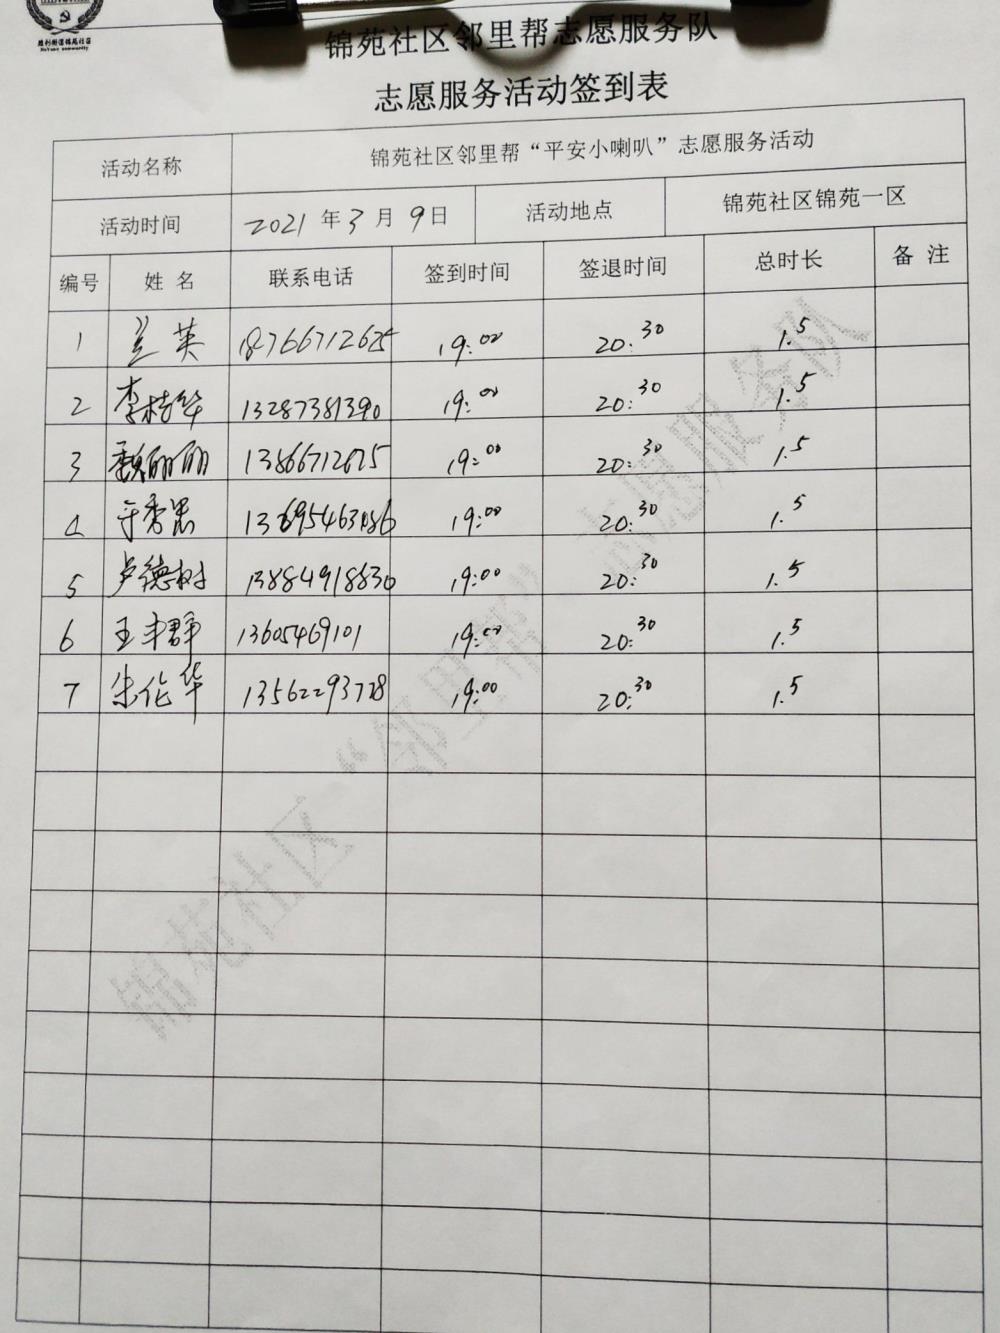 胜利街道锦苑社区
锦苑社区邻里帮志愿服务队
志愿服务活动签到表
活动名称 锦苑社区邻里帮“平安小喇叭”志愿服务活动
活动时间 2021 年 3 月 9 日 活动地点 锦苑社区锦苑一区
编号 姓 名 联系电话 签到时间 签退时间 总时长 备 注
1 兰英 18766712625 19:00 20:30 1.5
2 李桂华 13287381390 19:00 20:30 1.5
3 魏丽丽 13866712675 19:00 20:30 1.5
4 19:00 20:30 1.5
5 卢德树 13884918830 19:00 20:30 1.5
6 王丰群 13605469101 19:00 20:30 1.5
7 朱伦华 13562293778 19:00 20:30 1.5
锦苑社区“邻里帮”志愿服务队